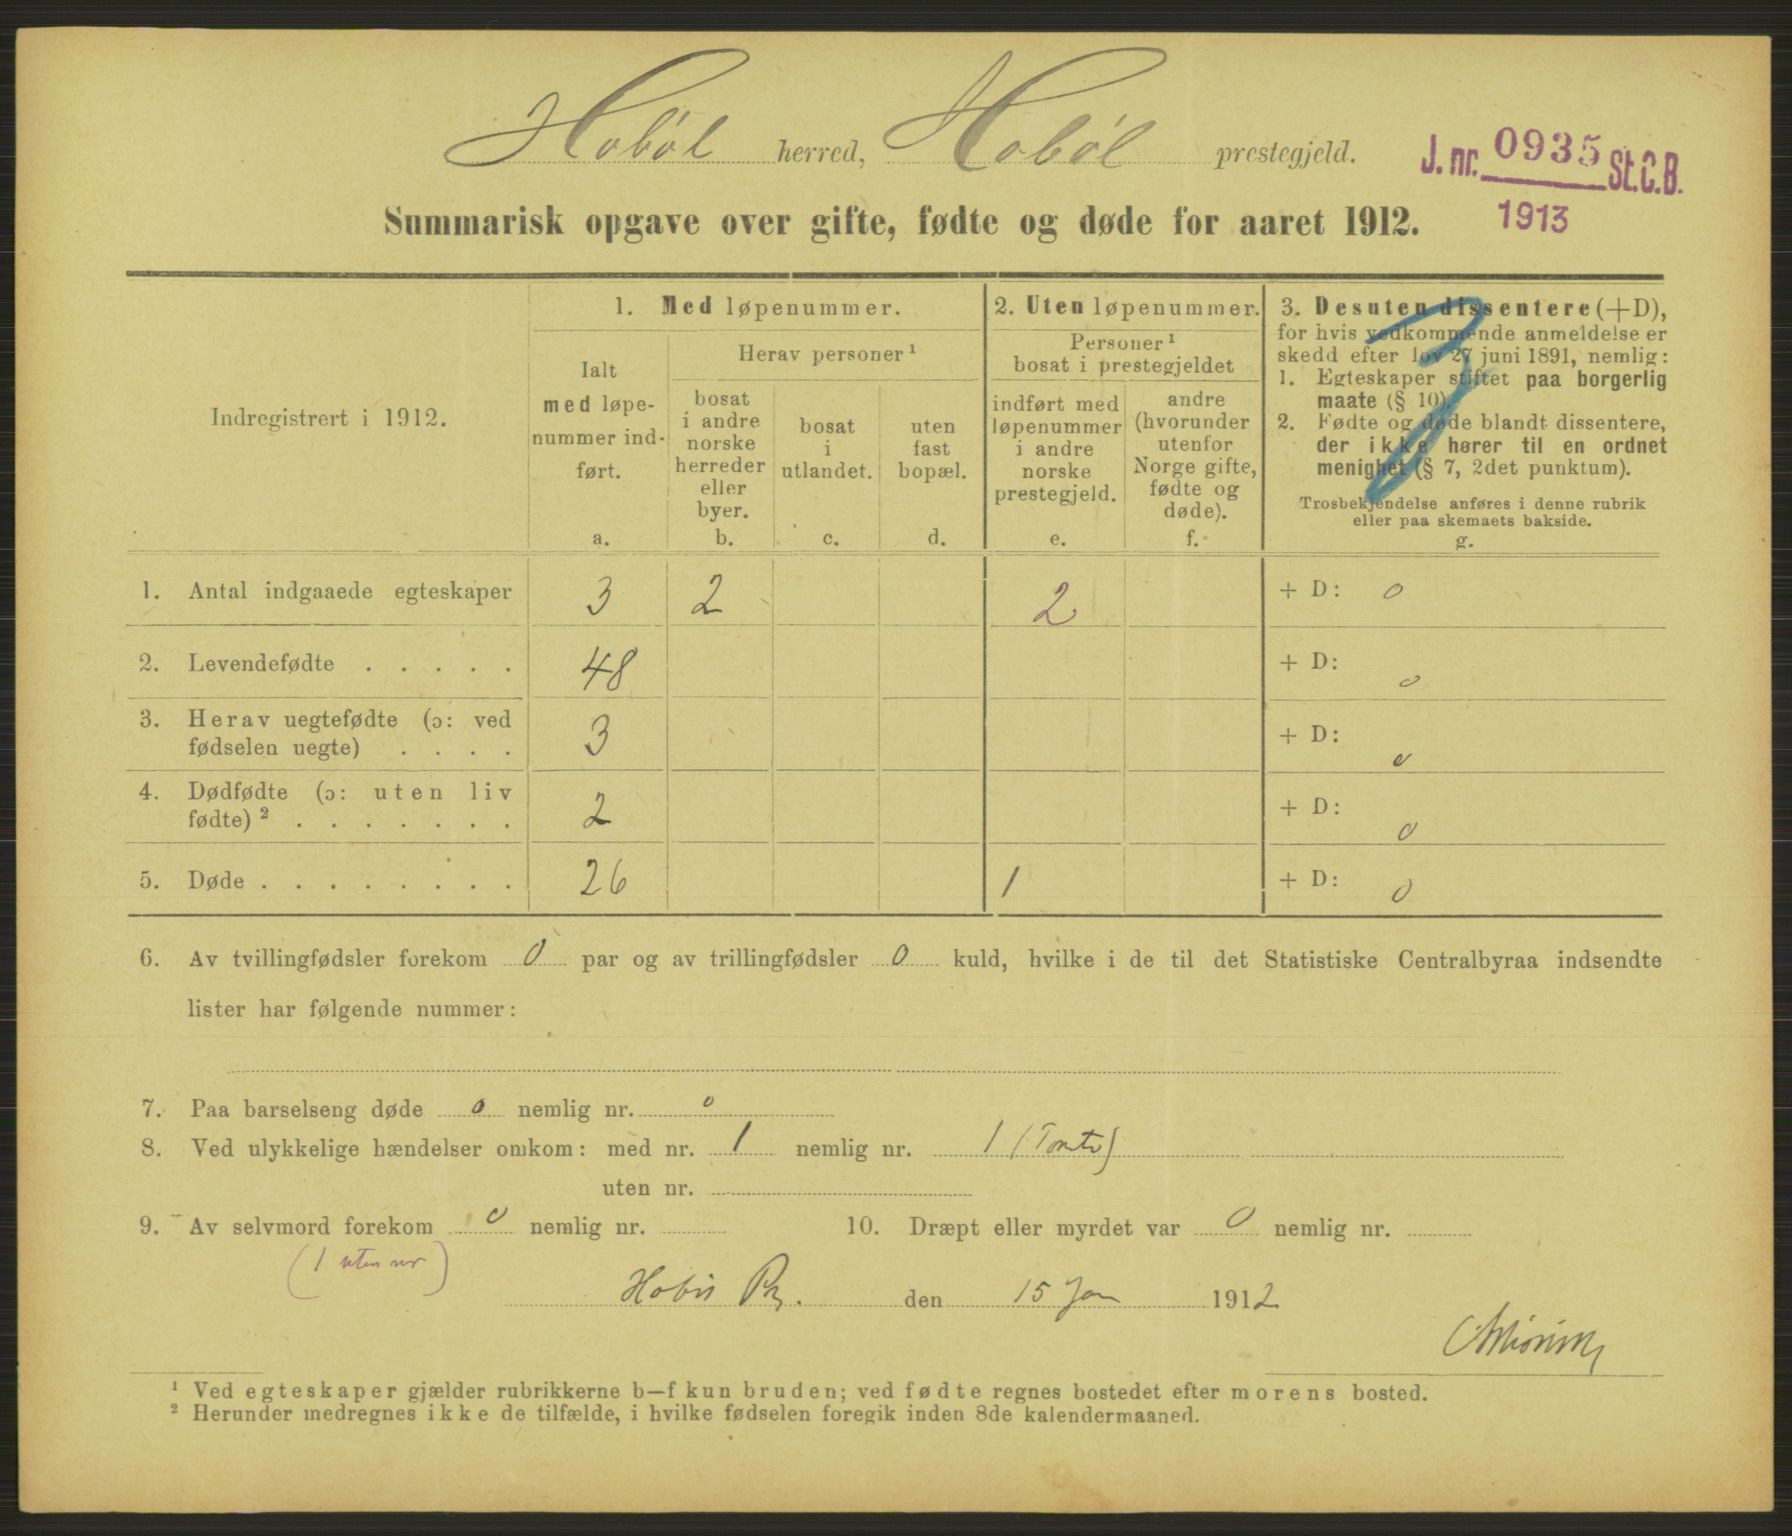 Hobøl herred, Hobøl prestegjeld.
J. nr. 0935 St.C.B.
1913
Summarisk opgave over gifte, fødte og døde for aaret 1912.
Indregistrert i 1912.
1. Med løpenummer.
Ialt
med løpe-
nummer ind-
ført.
a.
Herav personer ¹
bosat
i andre
norske
herreder
eller
byer.
b.
bosat
i
utlandet.
c.
uten
fast
bopæl.
d.
2. Uten løpenummer.
Personer ¹
bosat i prestegjeldet
indført med
løpenummer
i andre
norske
prestegjeld.
e.
andre
(hvorunder
utenfor
Norge gifte,
fødte og
døde).
f.
3. Desuten dissentere (+D),
for hvis vedkommende anmeldelse er
skedd efter lov 27 juni 1891, nemlig:
1. Egteskaper stiftet paa borgerlig
maate (§ 10).
2. Fødte og døde blandt dissentere,
der ikke hører til en ordnet
menighet (§ 7, 2det punktum).
Trosbekjendelse anføres i denne rubrik
eller paa skemaets bakside.
g.
1. Antal indgaaede egteskaper 3 2 2 + D: 0
2. Levendefødte . . . . . 48 + D: 0
3. Herav uegtefødte (ɔ: ved
fødselen uegte) . . . . 3 + D: 0
4. Dødfødte (ɔ: uten liv
fødte) ² . . . . . . . 2 + D: 0
5. Døde . . . . . . . . 26 1 + D: 0
6. Av tvillingfødsler forekom 0 par og av trillingfødsler 0 kuld, hvilke i de til det Statistiske Centralbyraa indsendte
lister har følgende nummer:
7. Paa barselseng døde 0 nemlig nr. 0
8. Ved ulykkelige hændelser omkom: med nr. 1 nemlig nr. 1
uten nr.
9. Av selvmord forekom 0 nemlig nr. 10. Dræpt eller myrdet var 0 nemlig nr.
(1 uten nr)
den 15 Jan 1912
¹ Ved egteskaper gjælder rubrikkerne b—f kun bruden; ved fødte regnes bostedet efter morens bosted.
² Herunder medregnes ikke de tilfælde, i hvilke fødselen foregik inden 8de kalendermaaned.